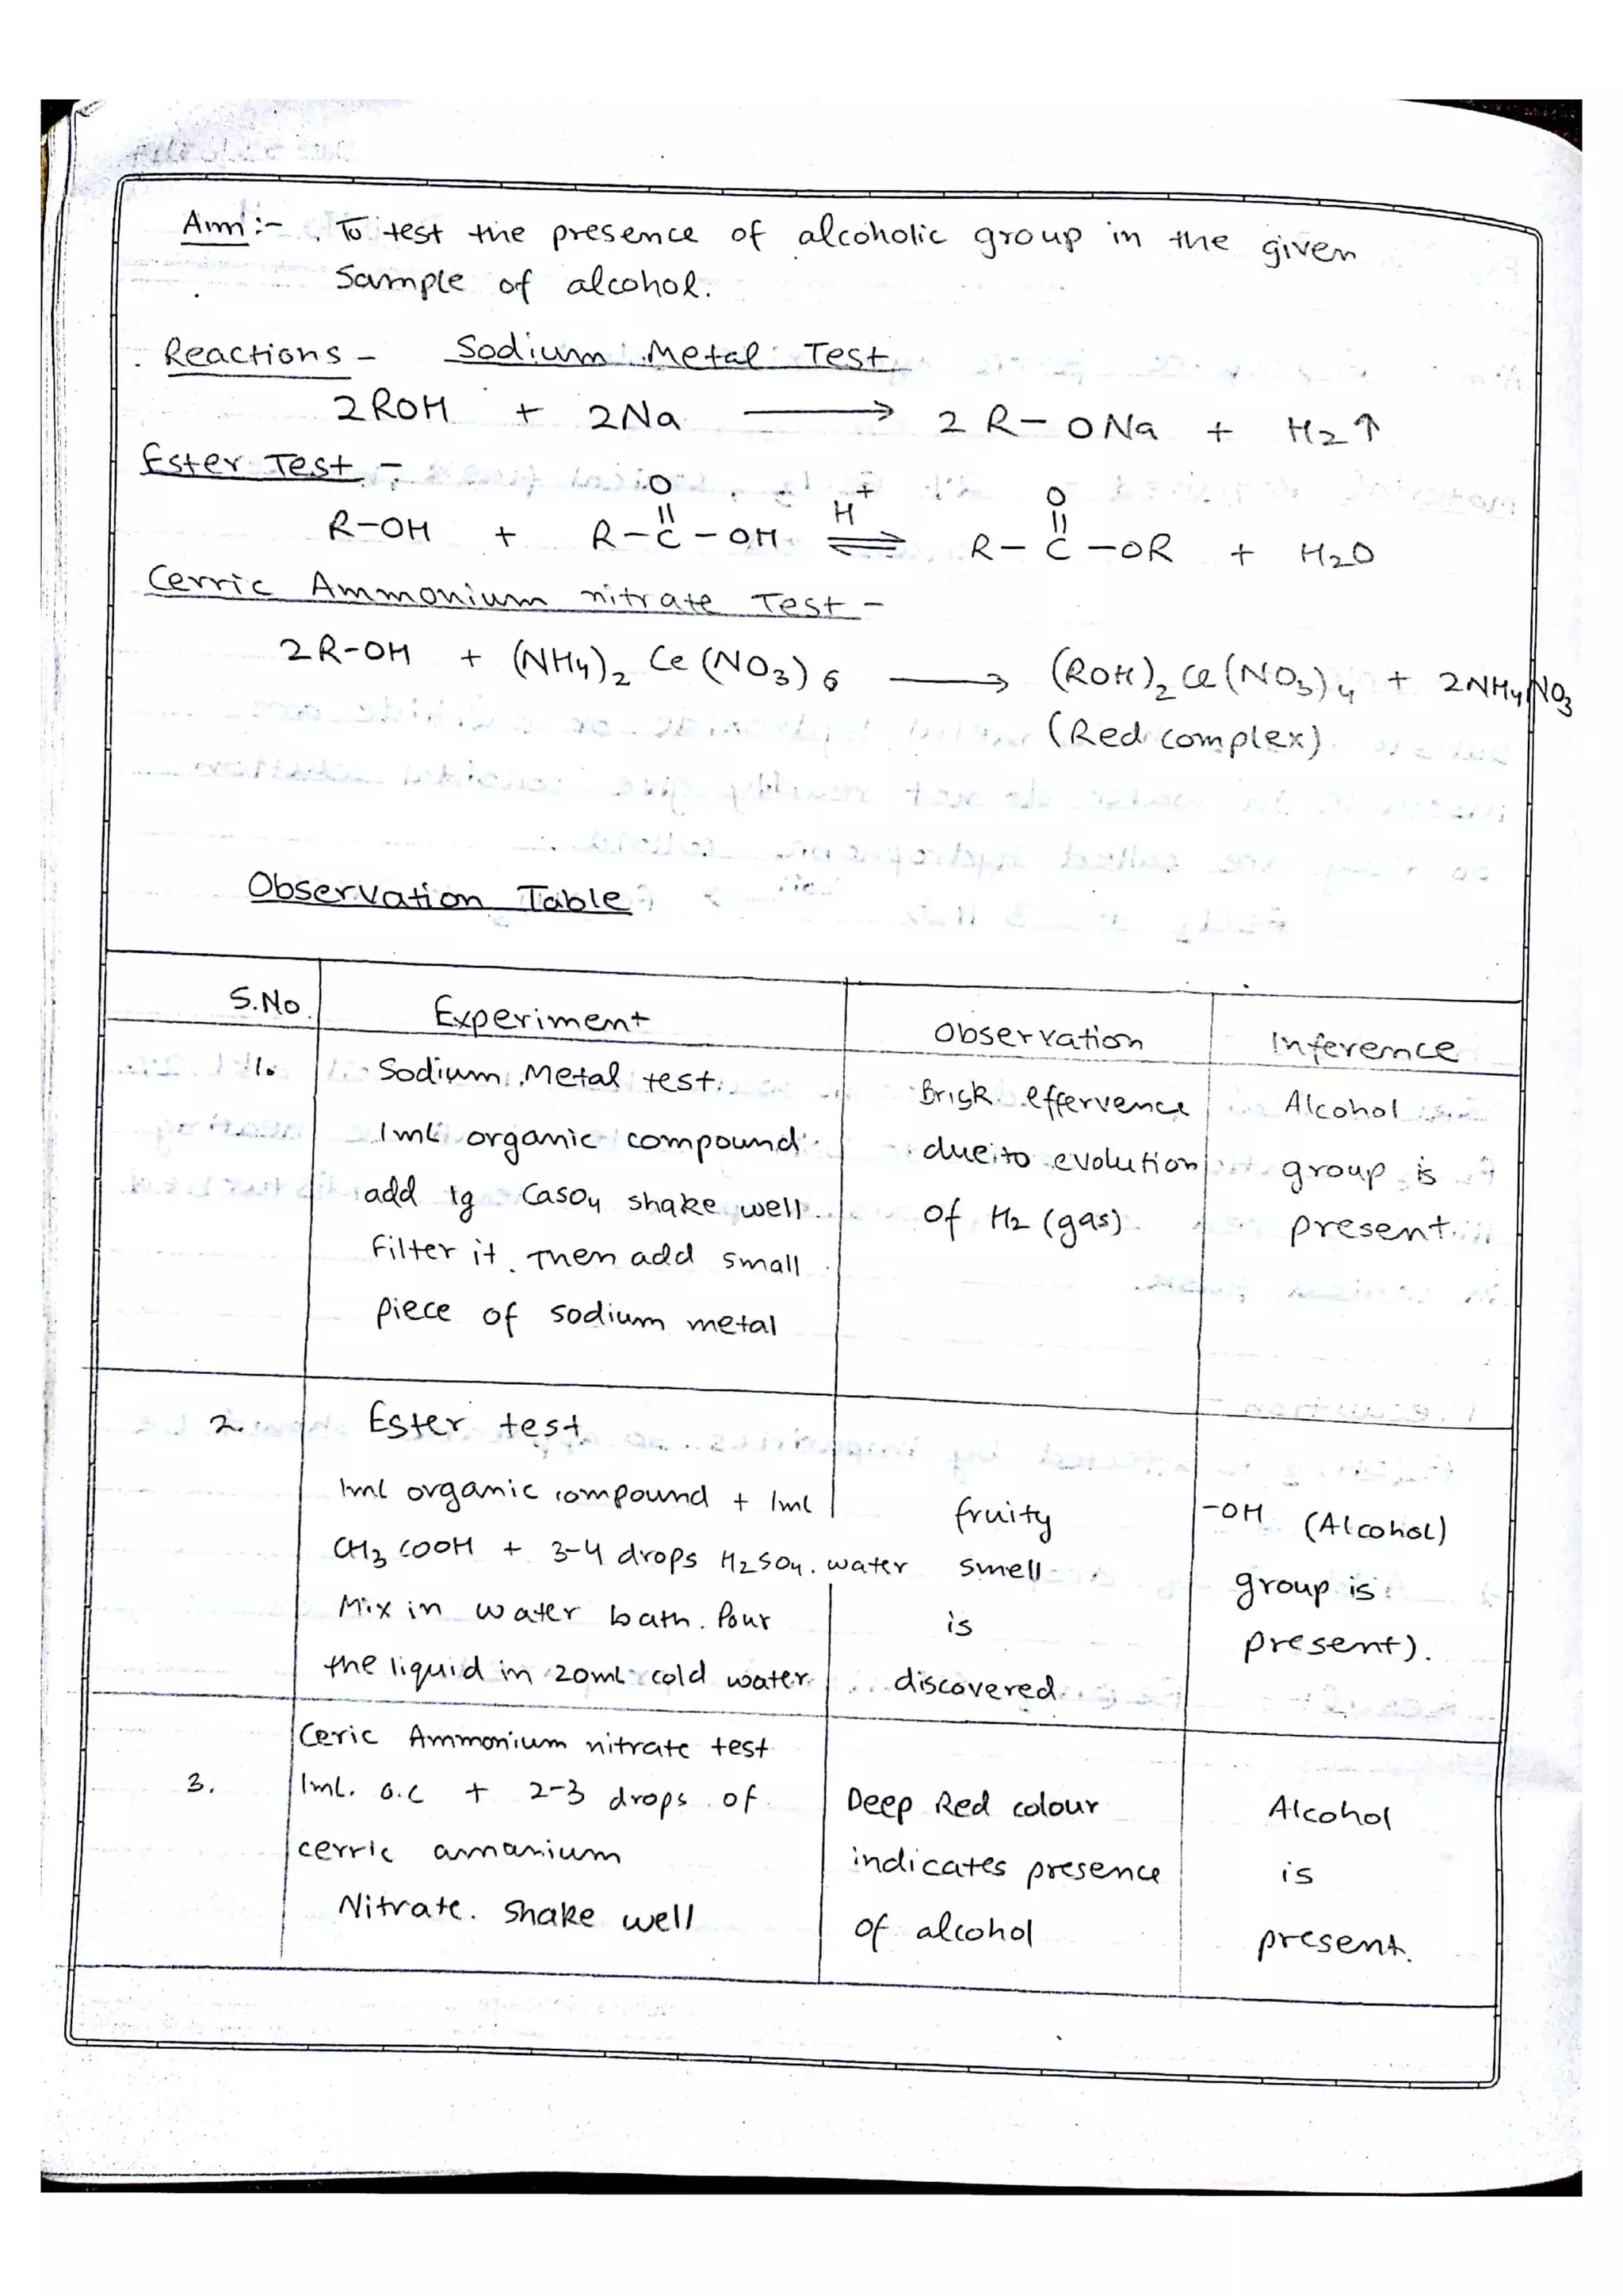 Aim :- To test the presence of alcoholic group in the given
Sample of alcohol.
Reactions - Sodium Metal Test
2ROH + 2Na ⟶ 2 R- ONa + H2↑
Ester Test -
O H+ O
R-OH + R-C-OH ⇌ R-C-OR + H2O
Cerric Ammonium nitrate Test -
2R-OH + (NH4)2 Ce (NO3)6 ⟶ (ROH)2 Ce(NO3)4 + 2NH4NO3
(Red complex)
Observation Table
S.No. Experiment Observation Inference
1. Sodium Metal test.
1ml organic compound
add 1g CaSO4 shake well.
Filter it. Then add small
piece of sodium metal
Brisk effervence
due to evolution
of H2 (gas)
Alcohol
group is
present.
2. Ester test
1ml organic compound + 1ml
CH3COOH + 3-4 drops H2SO4. water
Mix in water bath. Pour
the liquid in 20ml cold water
fruity
smell
is
discovered
-OH (Alcohol)
group is
present).
3. Ceric Ammonium nitrate test
1ml. o.c + 2-3 drops of
cerric ammanium
Nitrate. Shake well
Deep Red colour
indicates presence
of alcohol
Alcohol
is
present.